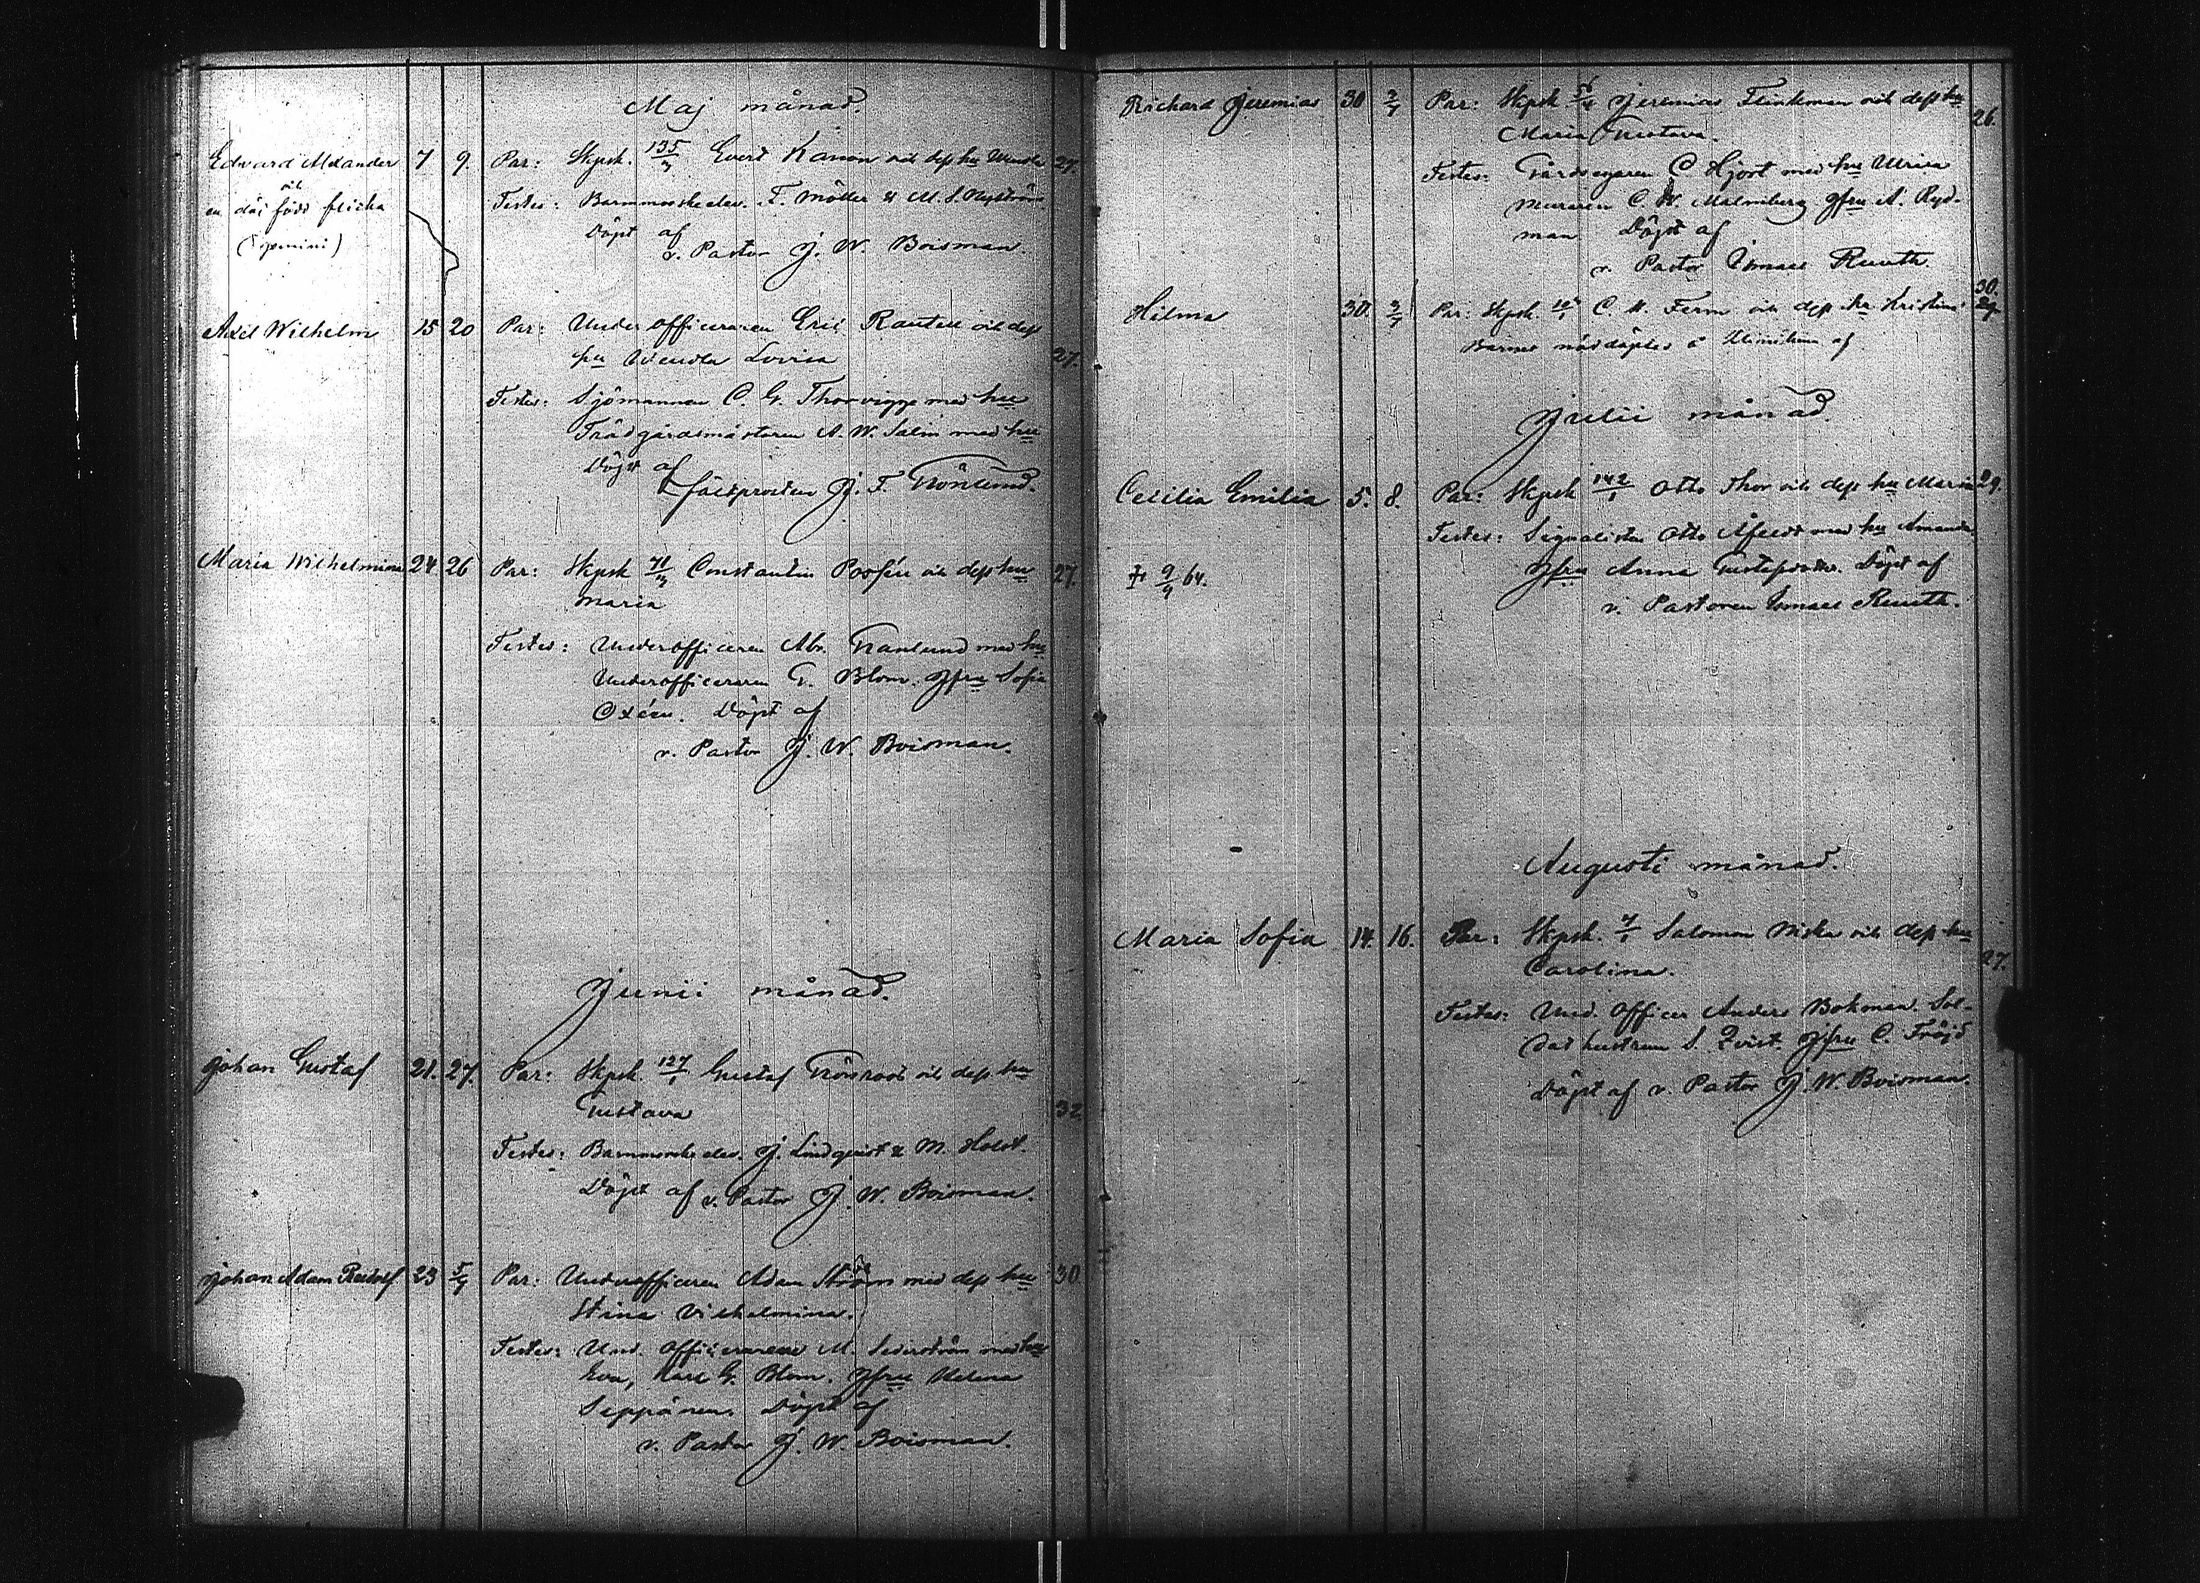 Maj månad.
Edvard Alexander 7 9. Par: Skpsk. 135/3 Evert Kanon och dess hu Wendla 27.
och
en död född flicka
(Gemini)
Testes: Barnmorskeelev. F. Möller & M. S. Nyström
Döpt af
v. Pastor J. W. Boisman.
Axel Wilhelm 15 20 Par: Underofficeraren Eric Rautell och dess
hu Wendla Lovisa 27.
Testes: Sjömannen C. G. Thorvigge med hu
Trädgårdsmästaren A. W. Salin med hu
Döpt af
Fältprosten J. F. Grönlund.
Maria Wilhelmina 24. 26 Par: Skpsk 71/3 Constantin och dess hu 27.
Maria
Testes: Underofficeren Abr. Granlund med hu
Underofficeraren G. Blom. Jfru Sofia
Oxén. Döpt af
v. Pastor J. W. Boisman.
Junii månad.
Johan Gustaf 21. 27. Par: Skpsk. 127/1 Gustaf Grönroos och dess hu
Gustava 32
Testes: Barnmorskeelev. J. Lindqvist & M. Holst.
Döpt af v. Pastor J. W. Boisman.
Johan Adam Rudolf 23 5/7 Par: Underofficeren Adam Ström med dess hu 30
Stina Vilhelmina.
Testes: Und. Officerarene M. Sederström med hu
Eva, Karl G. Blom. Jfru Helena
Seppänen. Döpt af
v. Pastor J. W. Boisman.
Richard Jeremias 30 2/7 Par: Skpsk Jeremias Flinkman och dess hu
Maria Gustava. 26.
Testes: Gårdsegaren C Hjort med hu Ulrica
Muraren C. W. Malmberg Jfru A. Ryd-
man Döpt af
v. Pastor Ismael Ruuth.
30.
Hilma 30. 3/7 Par: Skpsk C. H. Ferm och dess hu Kristina 29.
Barnet nöddöptes å Klinikum af
Julii månad.
Cecilia Emilia 5. 8. Par: Skpsk 142/1 Otto Thor och dess hu Maria 29.
Testes: Signalisten Otto Åfeldt med hu Amanda
† 9/9 64. Jfru Anna Gustafsdotter. Döpt af
v. Pastoren Ismael Ruuth.
Augusti månad.
Maria Sofia 14. 16. Par: Skpsk. 7/1 Salomon Niska och dess hu
Carolina. 27.
Testes: Und. Officer Anders Bokman. Sol-
dat hustrun S. Zvist. Jfru C. Fröjd
Döpt af v. Pastor J. W. Boisman.